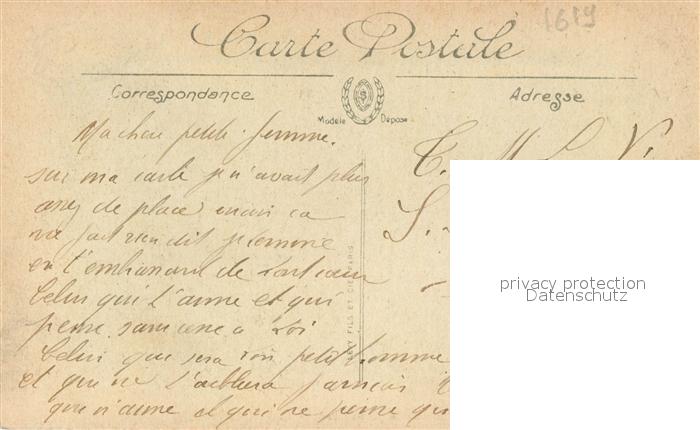 1619
Carte Postale
Correspondance
Adresse
Modèle Déposé
Ma cher petite femme.
sur ma carte je n'avait plus
assez de place mais ca
ne fait rien dit
en t'embrassant de tout cœur
Celui qui t'aime et qui
pense sans cesse a toi
Celui que sera ton petit homme
et qui ne t'oublira jamais
qui n'aime et qui ne pense qu
FILS ET CIE PARIS
privacy protection
Datenschutz